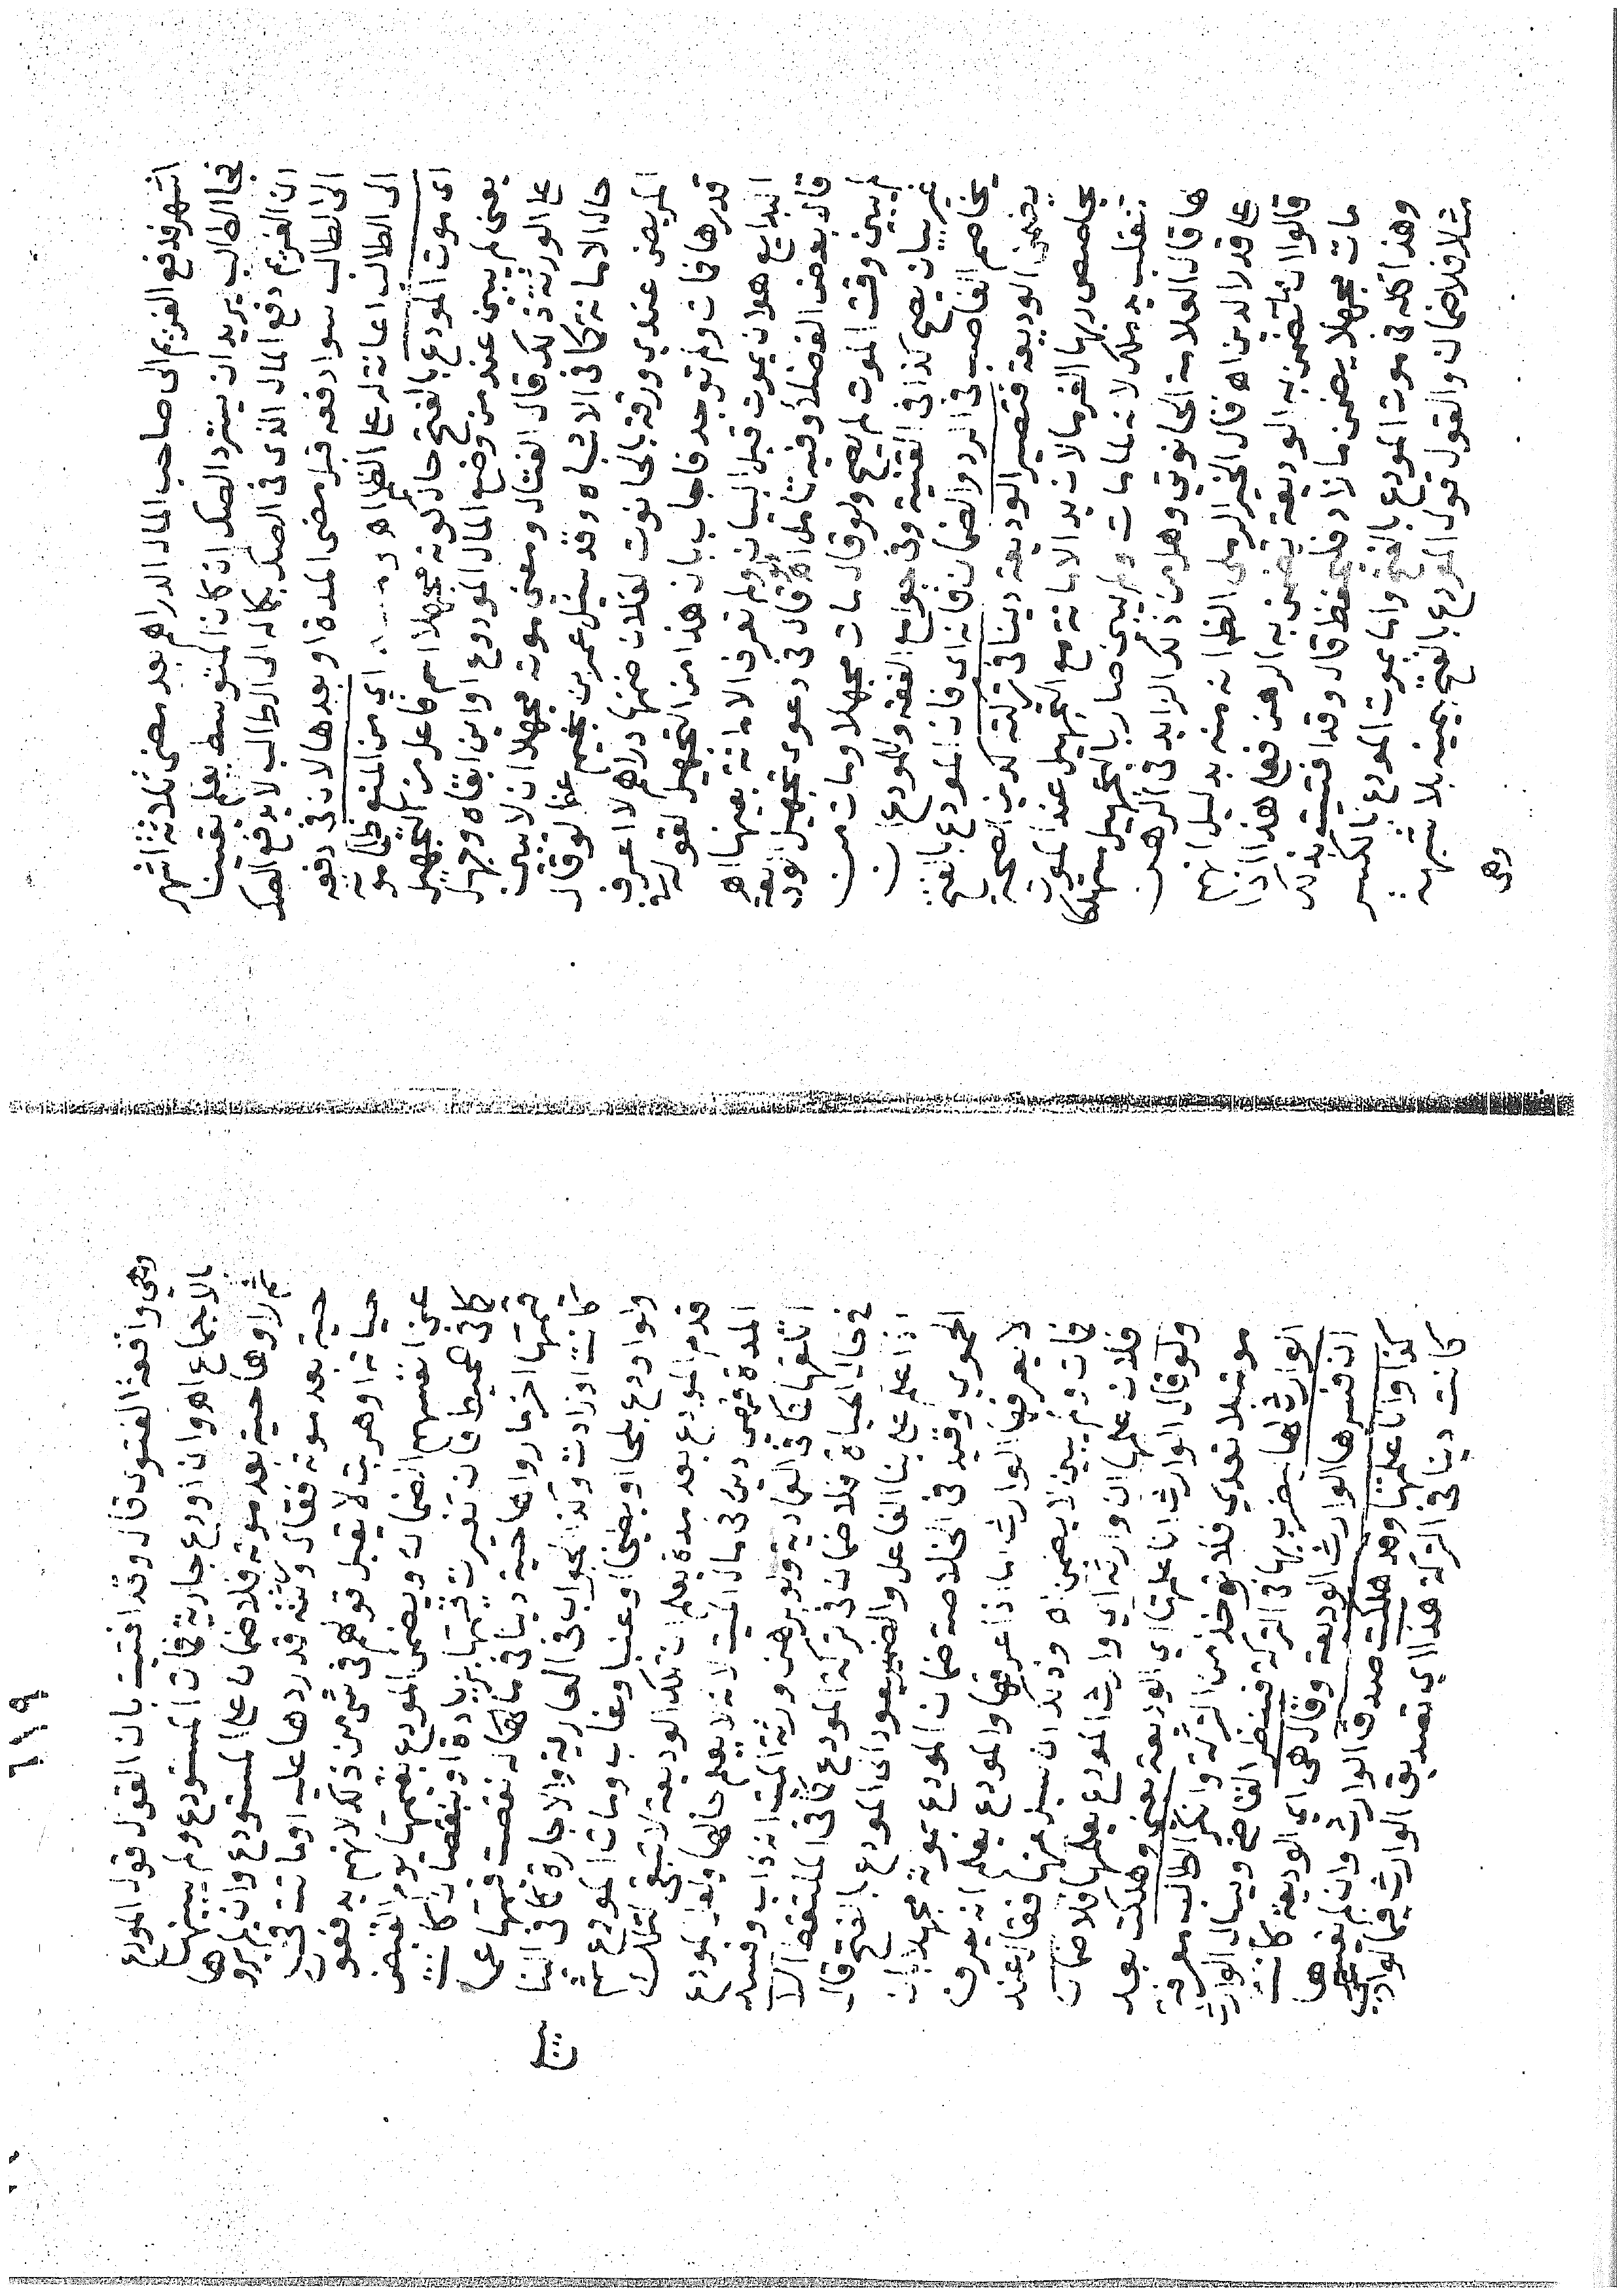 اشهر فدفع الغريم الى صاحب المال الدراهم بعد مضى ثلاثة اشهر
فجا الطالب يريد ان يسترد الصك ان كان المتوسط يعلم يقينا
ان الغريم دفع المال الذى فى الصك بكماله الى الطالب لا يدفع الصك
الى الطالب سوا دفعه قبل مضى المدة او بعدها لان فى دفعه
الى الطالب اعانة له على الظلم اه اي من
اى موت المودع بالفتح حال كونه مجهلا اسم فاعل من التجهيل
يعنى لم يبين عند من وضع المال المودوع او اين ابقاه وجهل
على الورثة ذلك قال الفتال ومعنى موته مجهلا ان لا يبين
حال الامانة كما فى الاشباه وقد سئل عمر بن نجيم عما لو قال
المريض عندي ورقة بالحانوت لفلان ضمنها دراهم لا اعرف
قدرها فمات ولم توجد فاجاب بان هذا من التجهيل لقوله
البدايع هو ان يموت قبل البيان ولم تعرف الامانة بعينها اه
قال بعض الفضلا وفيه تامل اه قال فى دعوى تجهيل الوديعة
لم يبين وقت الموت لم يصح ولو قال مات مجهلا ومات من
غير بيان يصح كذا فى القنية وفى جوامع الفقه وللمودع ان
يخاصم الغاصب فى الرد والضمان فانه اى فان المودع بالفتح
يضمن الوديعة فتصير الوديعة دينا فى تركته كدين الصحة
يحاصص ربها الغرما لان يد الامانة مع التجهيل عند الموت
تنقلب يد ملك لانه لما مات ولم يبين صار بالتجهيل مستهلكا
لها قال العلامة الحانوتي وهل من ذلك الزايد فى الرهن
على قدر الدين اه فقال الخير الرملى الظا انه منه بدليل انهم
قالوا ان ما تضمن به الوديعة يضمن به الرهن فعلى هذا اذا
مات مجهلا يضمن ما زاد فليحفظ قال وقد افتيت بذلك
وهذا كله فى موت المودع بالفتح واما بموت المودع بالكسر
مثلا فلا ضمان والقول قول المودع بالفتح بيمينه بلا شبهة
وهى
وهى واقعة الفتوى قال وقد افتيت بان القول قول المودع
بالاجماع اه وان اودع جارية فمات المستودع ولم يبينها
ثم راوها حية بعد موته فلا ضمان على المستودع وان لم يروها
حية بعد موته فقال ورثته قد ردها عليه او ماتت فى
حياته او هربت لا يقبل قولهم فى شى من ذلك لانهم يدفعون
عن انفسهم الضمان ويضمن المودع بقيمتها يوم القبض
كما فى المحيط فان تغيرت قيمتها بزيادة او بنقصان كانت
قيمتها اخر ما راوها حية دينا فى ماله نقصت قيمتها عما
كانت او زادت وكذا الجواب فى العارية والاجارة كما فى
ولو اودع بلحا او بطيخا او عنبا وغاب ومات المودع ثم
قدم المودع بعد مدة يعلم ان تلك الوديعة لا تبقى لتلك
المدة فهى دين فى مال الميت لانه لا يعلم حالها ولعل المودع
اتلفها كما فى العمادية ولو برهن ورثة الميت انه ذاب وفسد
فى حال الحياة فلا ضمان فى تركة المودع كما فى الملتقط الا
اذا علم على بنا الفاعل والضمير يعود اى المودع بالفتح قال
الحموي وقيد فى الخلاصة ضمان المودع بموته مجهلا بان
لا يعرفها الوارث اما اذا عرفها والمودع يعلم انه يعرف
فمات ولم يبين لا يضمن اه وذلك ان سئل عنها فقال عند
فلان علمها ان وارثه اي وارث المودع يعلمها فلا ضمان
ولو قال الوارث انا علمتها اي الوديعة يعنى وهلكت بعد
موته بلا تعدي فلا توخذ من التركة وانكر الطالب معرفة
الوارث لها يضرب بها فى التركة فينظر القاضى ويسال الوارث
ان فسرها الوارث الوديعة وقال هى اي الوديعة كانت
كذا وانا علمتها وقد هلكت صدق الوارث وان لم يفسرها
كانت دينا فى التركة هذا اي تصديق الوارث فيما لو ادعى
٦١١٩